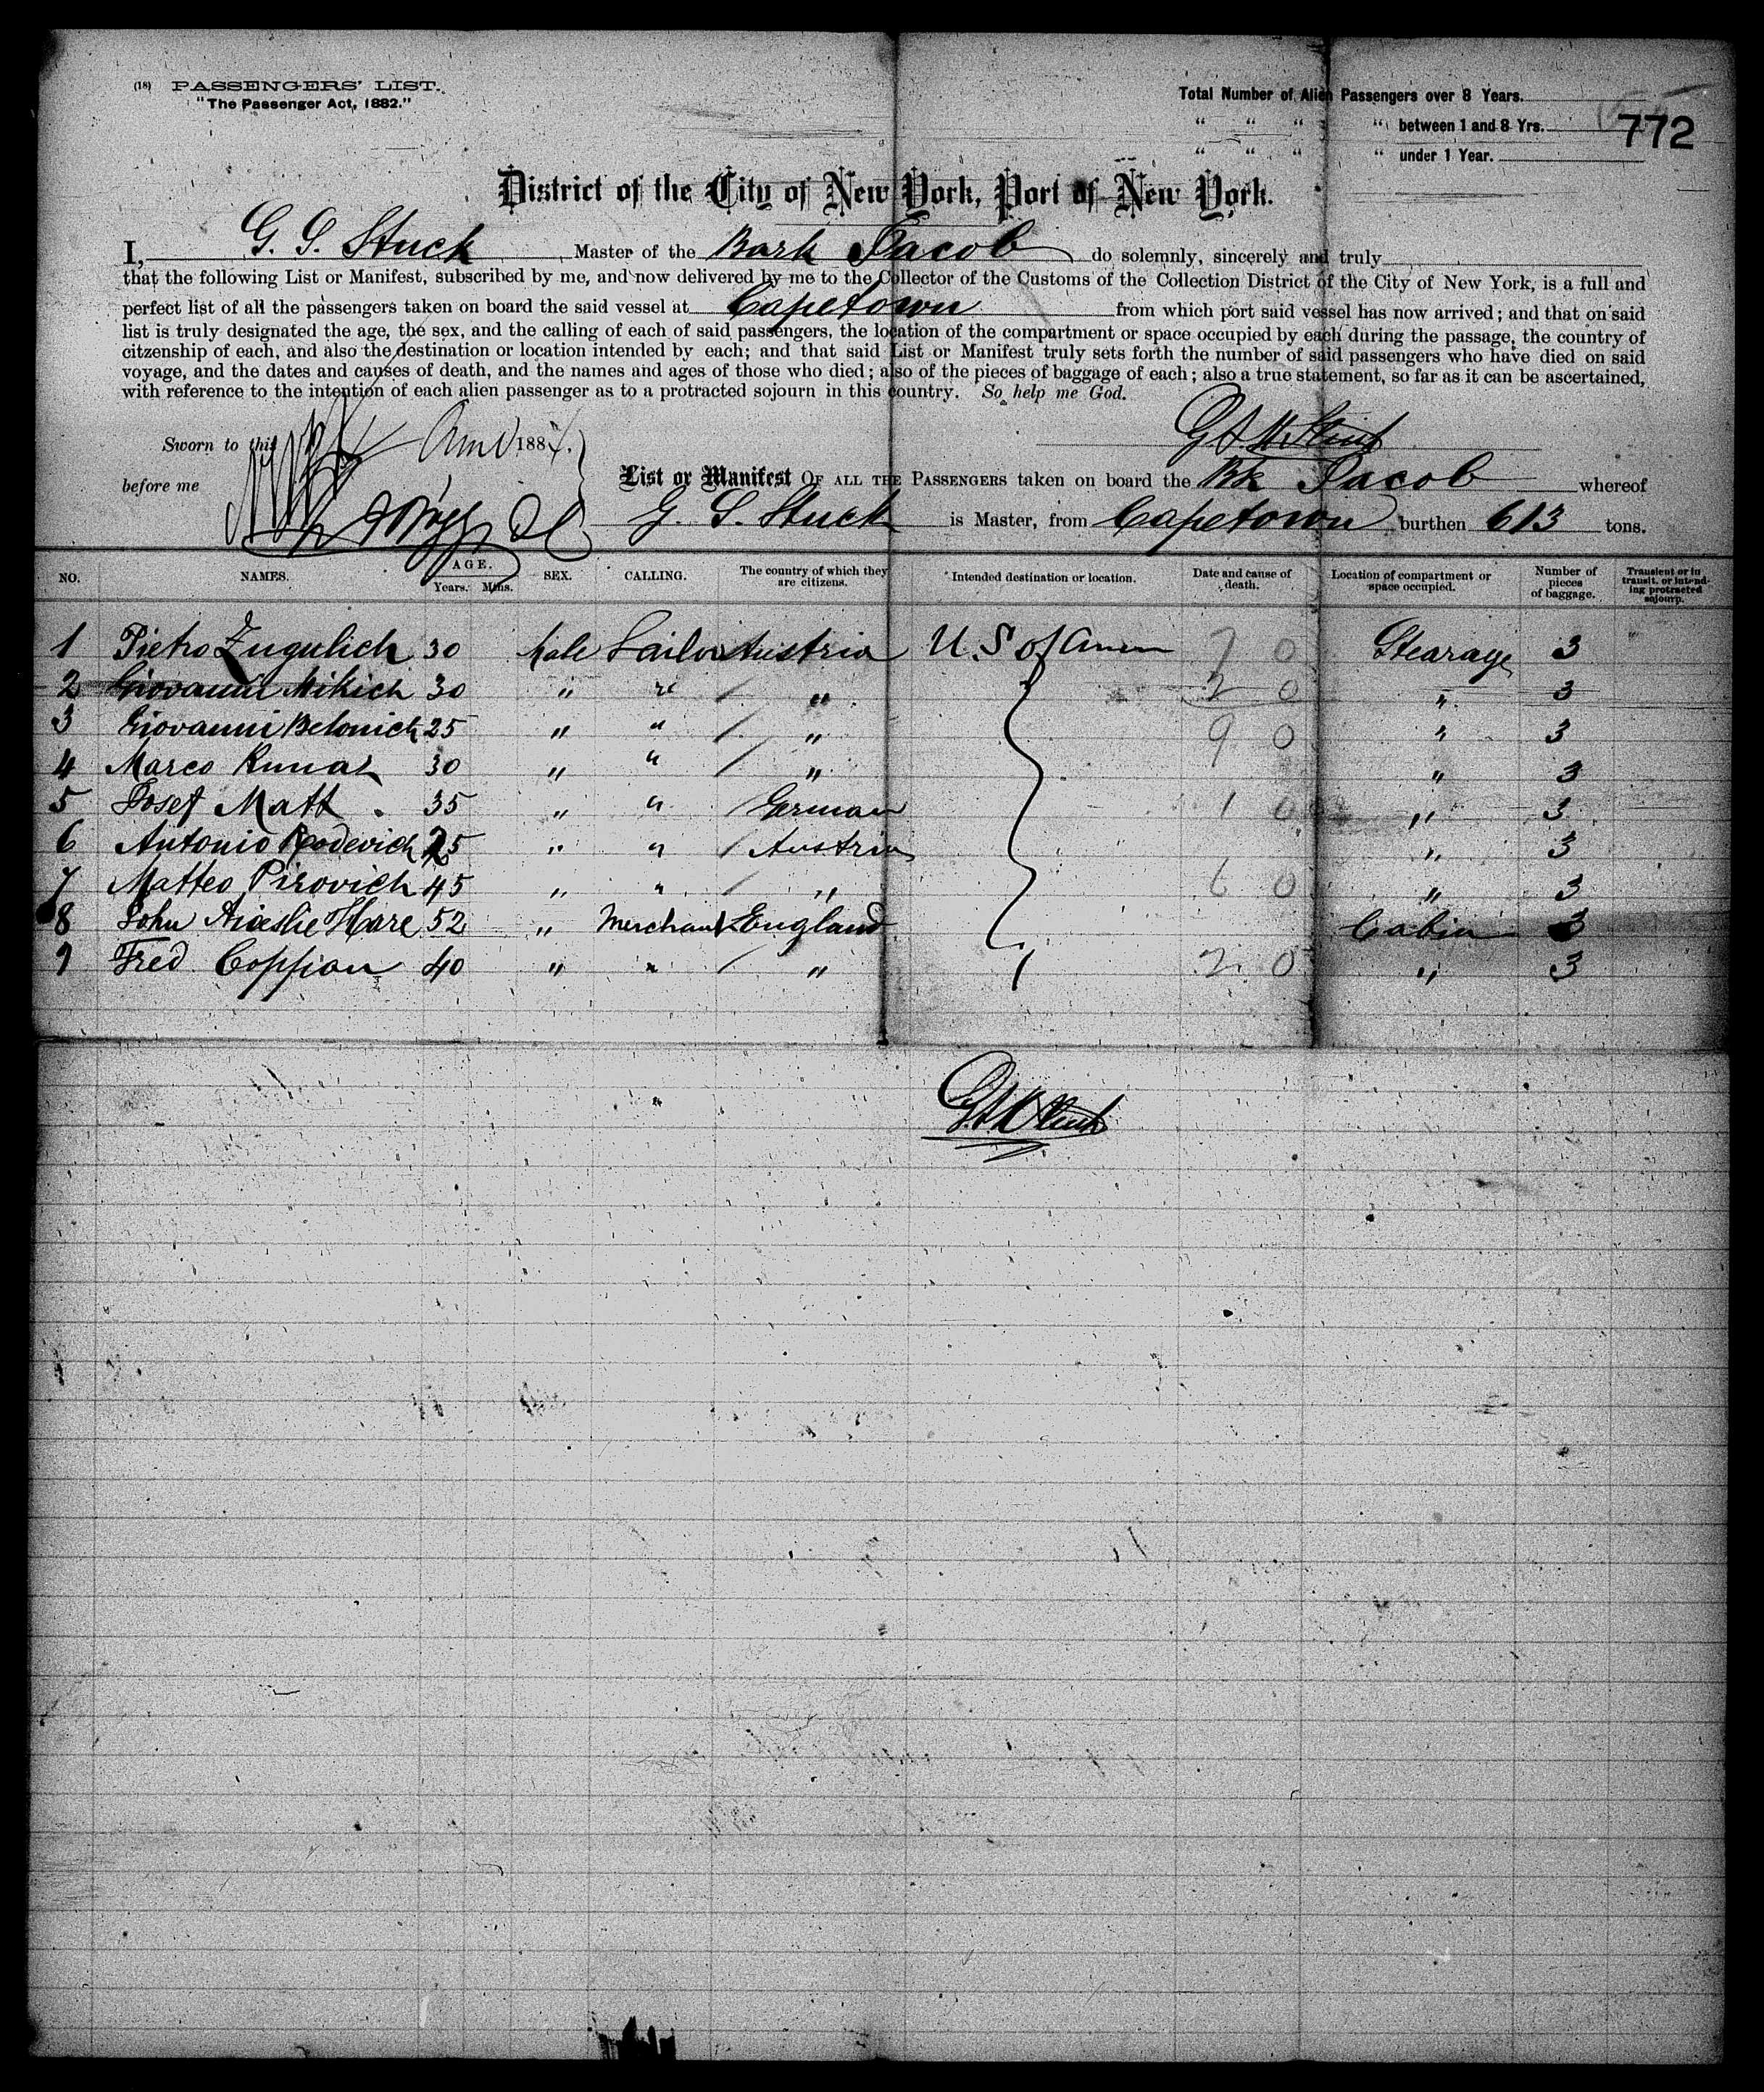 (18) PASSENGERS' LIST.
"The Passenger Act, 1882."
Total Number of Alien Passengers over 8 Years.
" " " " between 1 and 8 Yrs.
772
" " " " under 1 Year.
District of the City of New York, Port of New York.
I, G. S. Stuck Master of the Bark Jacob do solemnly, sincerely and truly
that the following List or Manifest, subscribed by me, and now delivered by me to the Collector of the Customs of the Collection District of the City of New York, is a full and
perfect list of all the passengers taken on board the said vessel at Capetown from which port said vessel has now arrived; and that on said
list is truly designated the age, the sex, and the calling of each of said passengers, the location of the compartment or space occupied by each during the passage, the country of
citzenship of each, and also the destination or location intended by each; and that said List or Manifest truly sets forth the number of said passengers who have died on said
voyage, and the dates and causes of death, and the names and ages of those who died; also of the pieces of baggage of each; also a true statement, so far as it can be ascertained,
with reference to the intention of each alien passenger as to a protracted sojourn in this country. So help me God.
Sworn to this 188
before me
List or Manifest OF ALL THE PASSENGERS taken on board the Bk Jacob whereof
G. S. Stuck is Master, from Capetown burthen 613 tons.
NO. NAMES. AGE. Years. Mths. SEX. CALLING. The country of which they are citizens. Intended destination or location. Date and cause of death. Location of compartment or space occupied. Number of pieces of baggage. Transient or in transit, or intending protracted sojourn.
1 Pietro Zugulich 30 Male Sailor Austria U.S of Amer 7 0 Stearage 3
2 Giovanni Mikich 30 " " " 2 0 " 3
3 Giovanni Belonich 25 " " " 9 0 " 3
4 Marco 30 " " " " 3
5 Josef Matt 35 " " German 1 0 " 3
6 Antonio Rodevich 25 " " Austria " 3
7 Matteo Pirovich 45 " " " 6 0 " 3
8 John Hare 52 " Merchant England Cabin 3
9 Fred Coppian 40 " " " 2 0 " 3